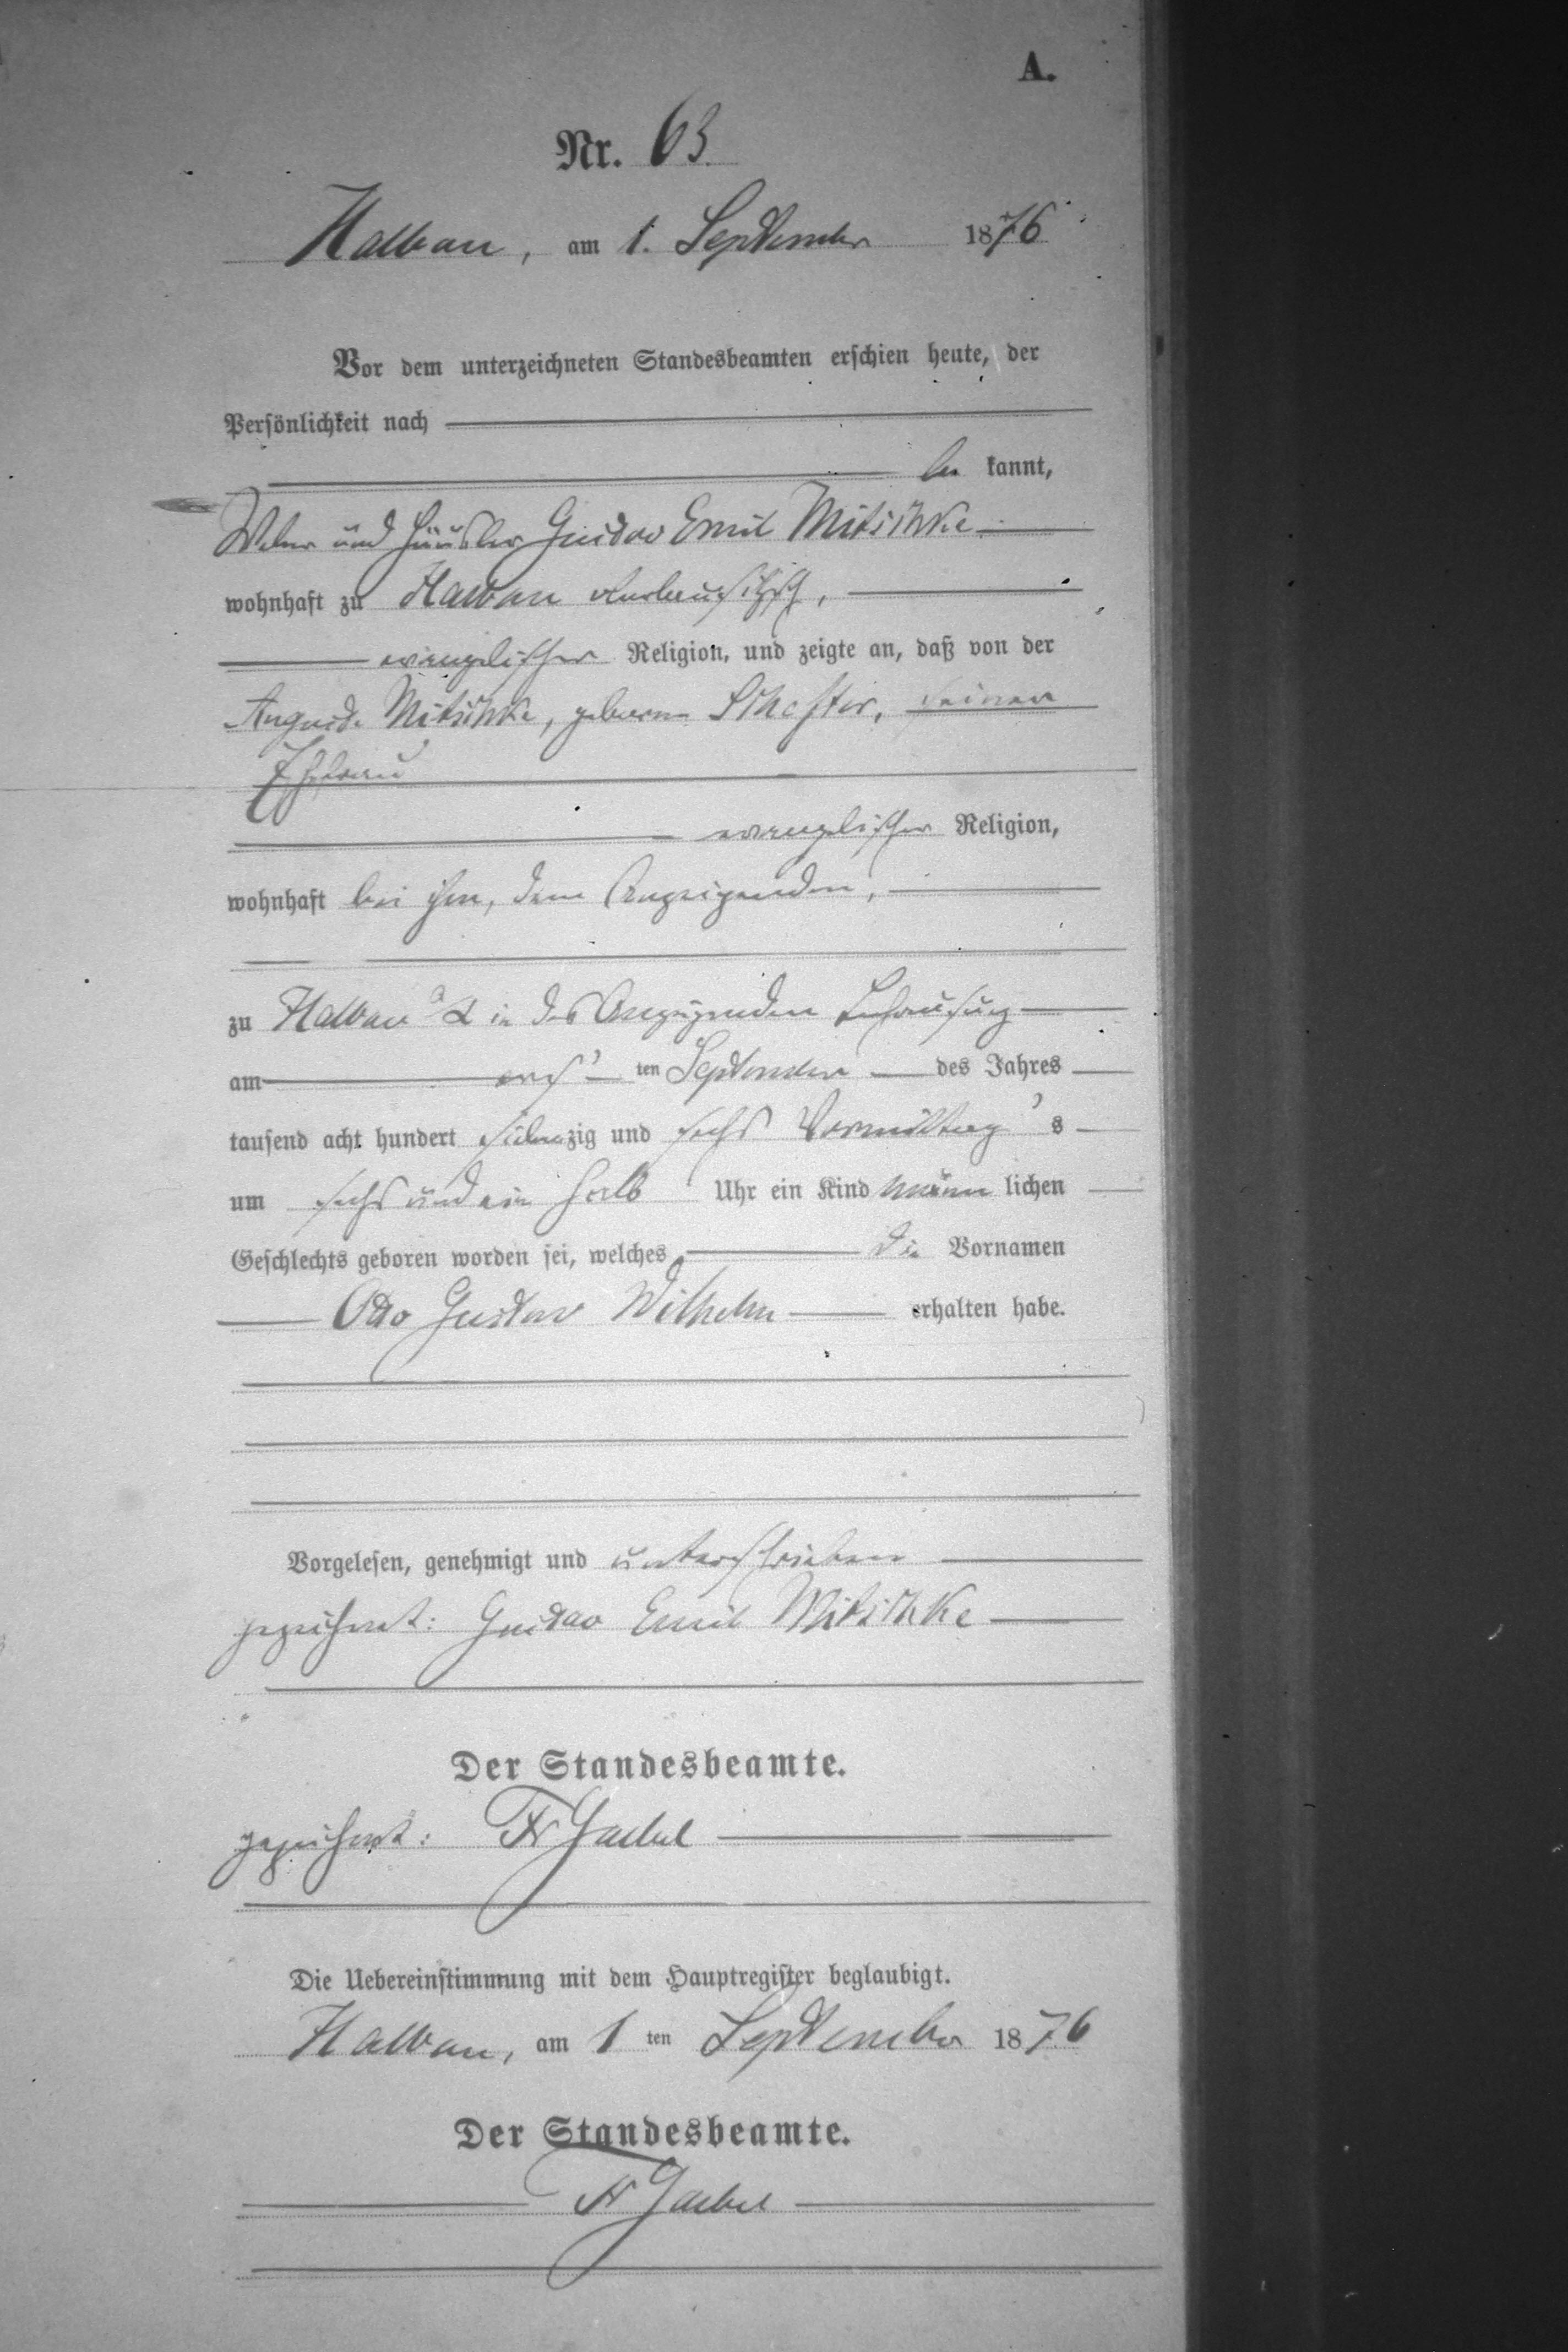 A.
Nr. 63.
Halbau, am 1. September 1876
Vor dem unterzeichneten Standesbeamten erschien heute, der
Persönlichkeit nach
be kannt,
Weber und Häusler Gustav Emil Mitschke
wohnhaft zu Halbau
evangelischer Religion, und zeigte an, daß von der
Auguste Mitschke, geborne seiner
Ehefrau
evangelischer Religion,
wohnhaft bei ihm, dem Anzeigenden,
zu Halbau in des Anzeigenden Behausung
am ers ten September des Jahres
tausend acht hundert siebenzig und sechs Vormittag s
um sechs und ein halb Uhr ein Kind männ lichen
Geschlechts geboren worden sei, welches die Vornamen
Otto Gustav Wilhelm erhalten habe.
Vorgelesen, genehmigt und unterschrieben
gezeichnet: Gustav Emil Mitschke
Der Standesbeamte.
gezeichnet: Fr Jaekel
Die Uebereinstimmung mit dem Hauptregister beglaubigt.
Halbau, am 1 ten September 1876
Der Standesbeamte.
Fr Jaekel